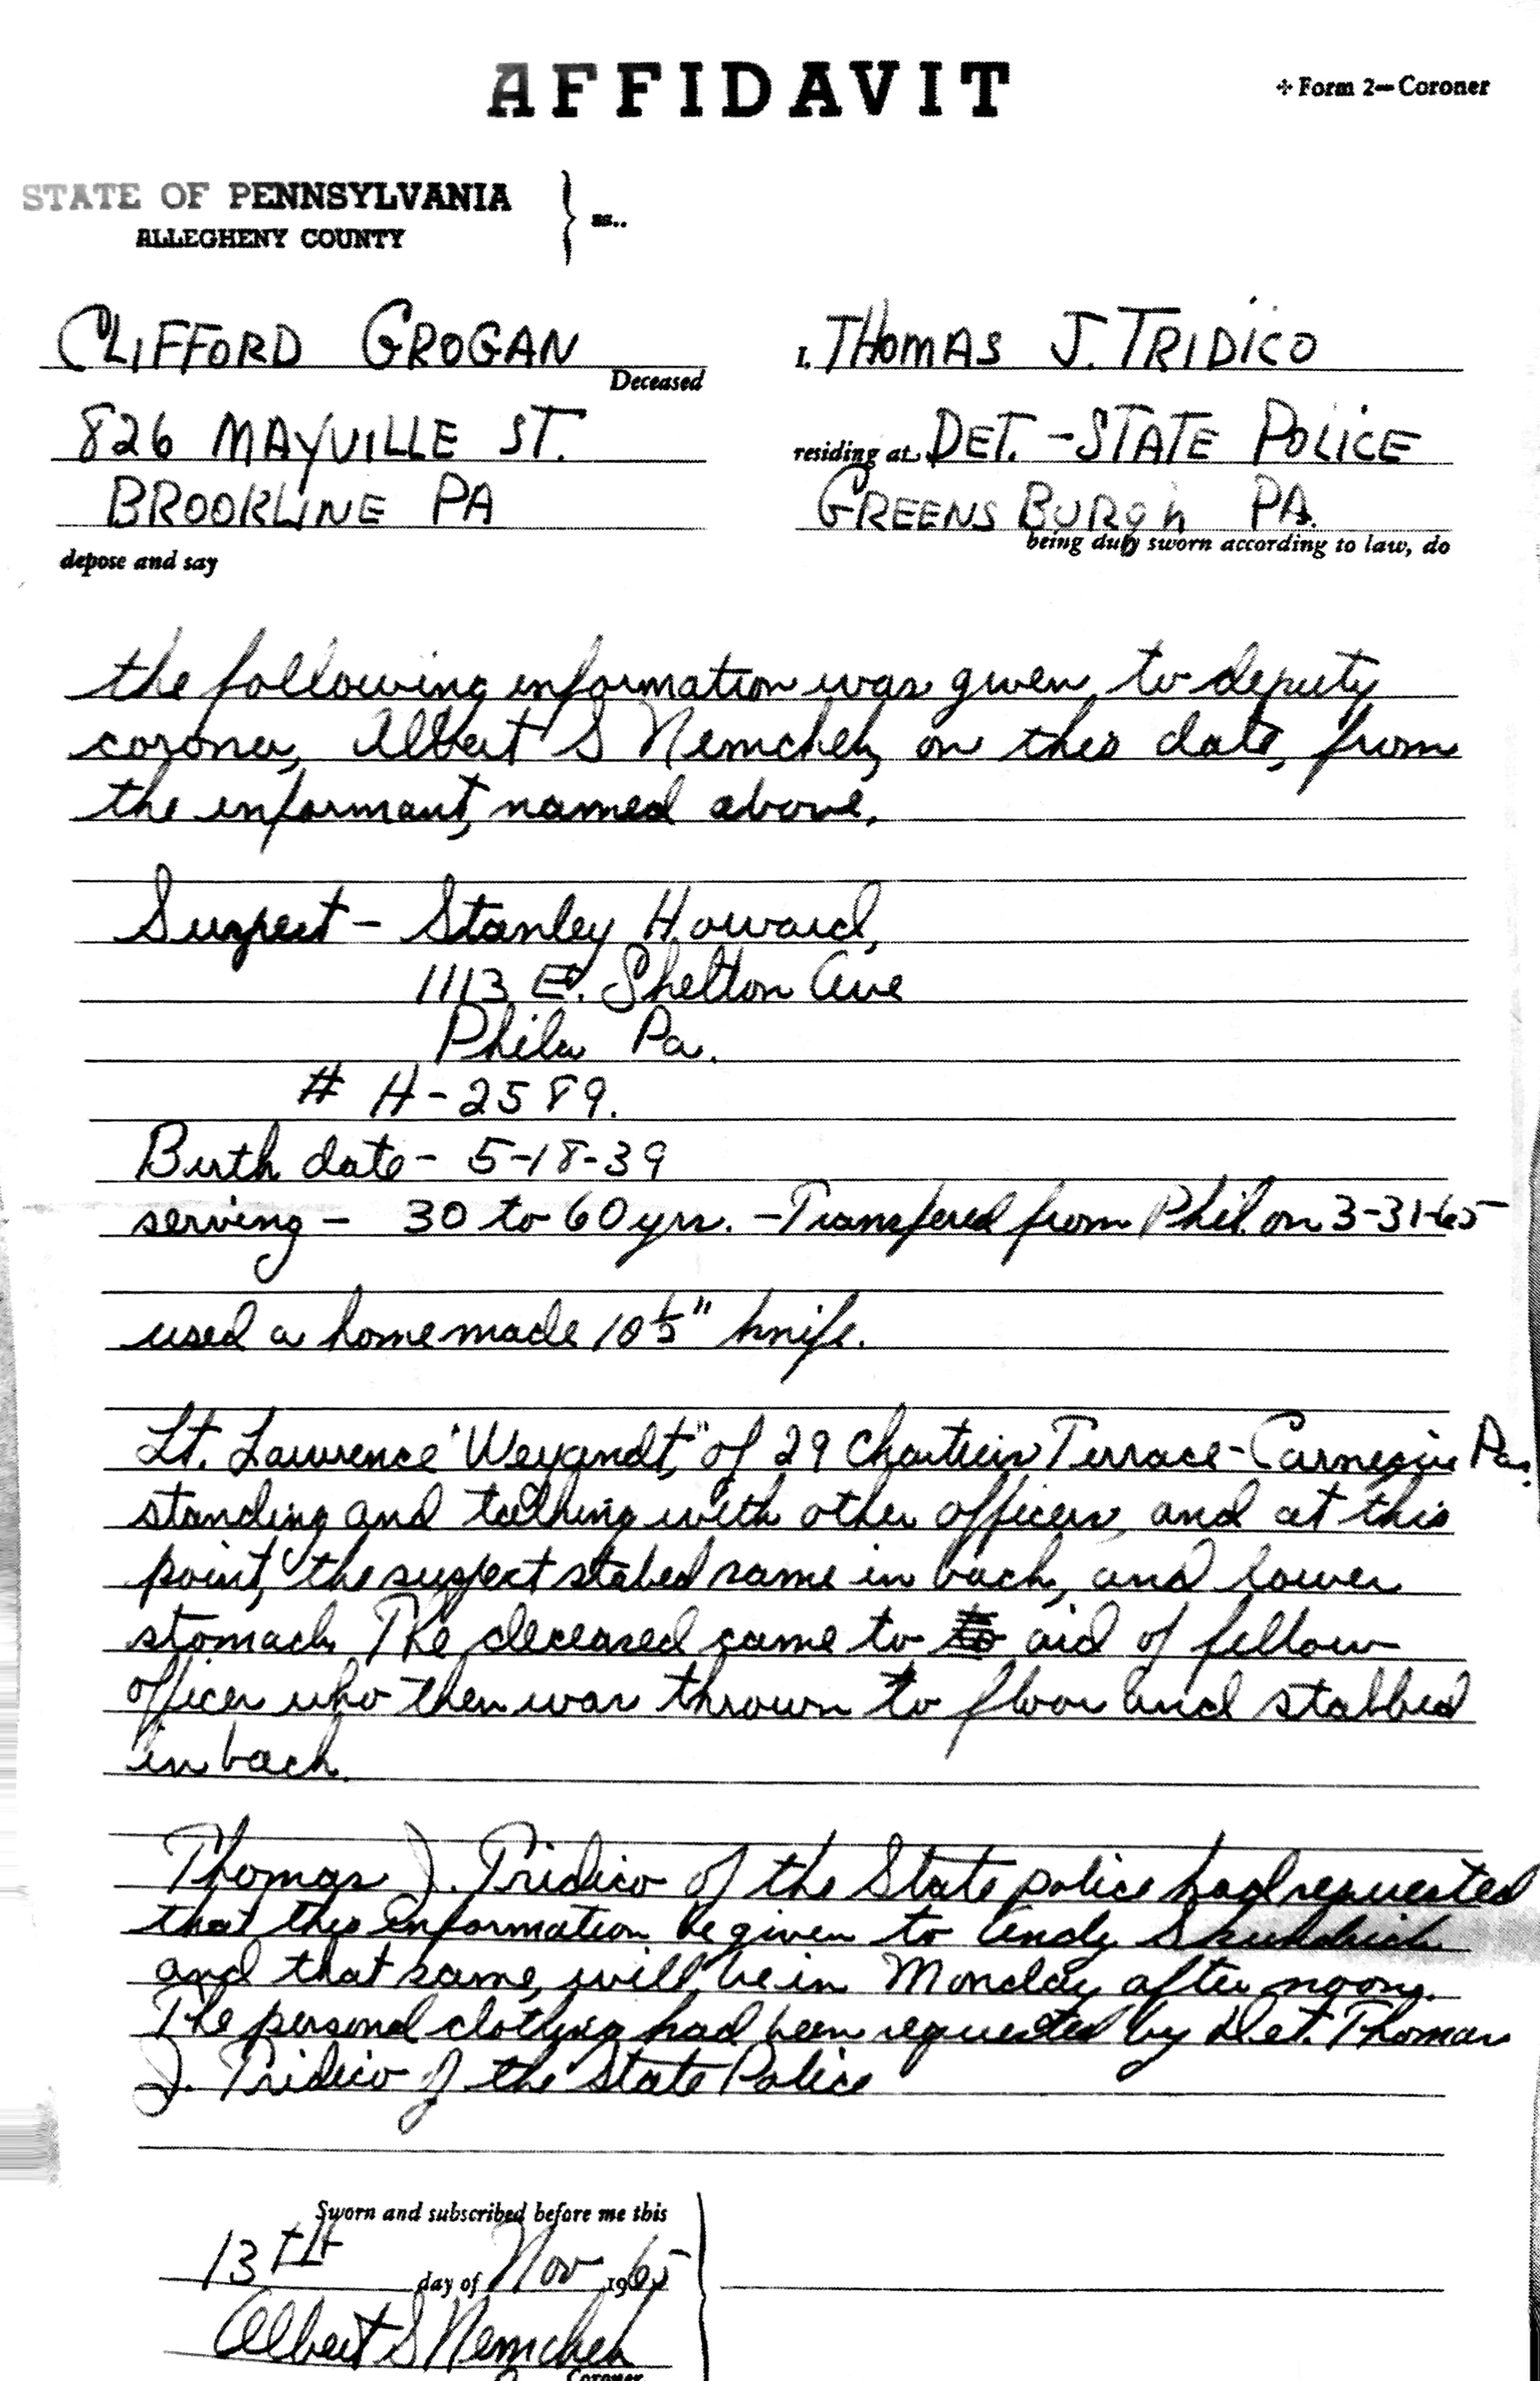 AFFIDAVIT
÷ Form 2—Coroner
STATE OF PENNSYLVANIA
ALLEGHENY COUNTY
ss..
CLIFFORD GROGAN
Deceased
826 MAYVILLE ST.
BROOKLINE PA
I, THOMAS J. TRIDICO
residing at DET. - STATE POLICE
GREENSBURGh PA.
being duly sworn according to law, do
depose and say
the following information was given, to deputy
coroner, Albert S Nemchek, on this date, from
the informant, named above.
Suspect - Stanley Howard,
1113 E. Shelton Ave
Phila Pa.
# H-2589.
Birth date - 5-18-39
serving - 30 to 60 yrs. - Transfered from Phil. on 3-31-65
used a homemade 10 1/2" knife.
Lt. Lawrence "Weyandt," of 29 Terrace - Carnegie Pa.
standing and talking with other officers, and at this
point, the suspect stabed same in back, and lower
stomach. The deceased came to to aid of fellow
officer who then was thrown to floor and stabbed
in back.
Thomas J. Tridico of the State police had requested
that this information be given to Andy
and that same, will be in Monday after noon.
The personal clothing had been requested by Det. Thomas
J. Tridico of the State Police
Sworn and subscribed before me this
13th day of Nov 1965
Albert S Nemchek
Coroner